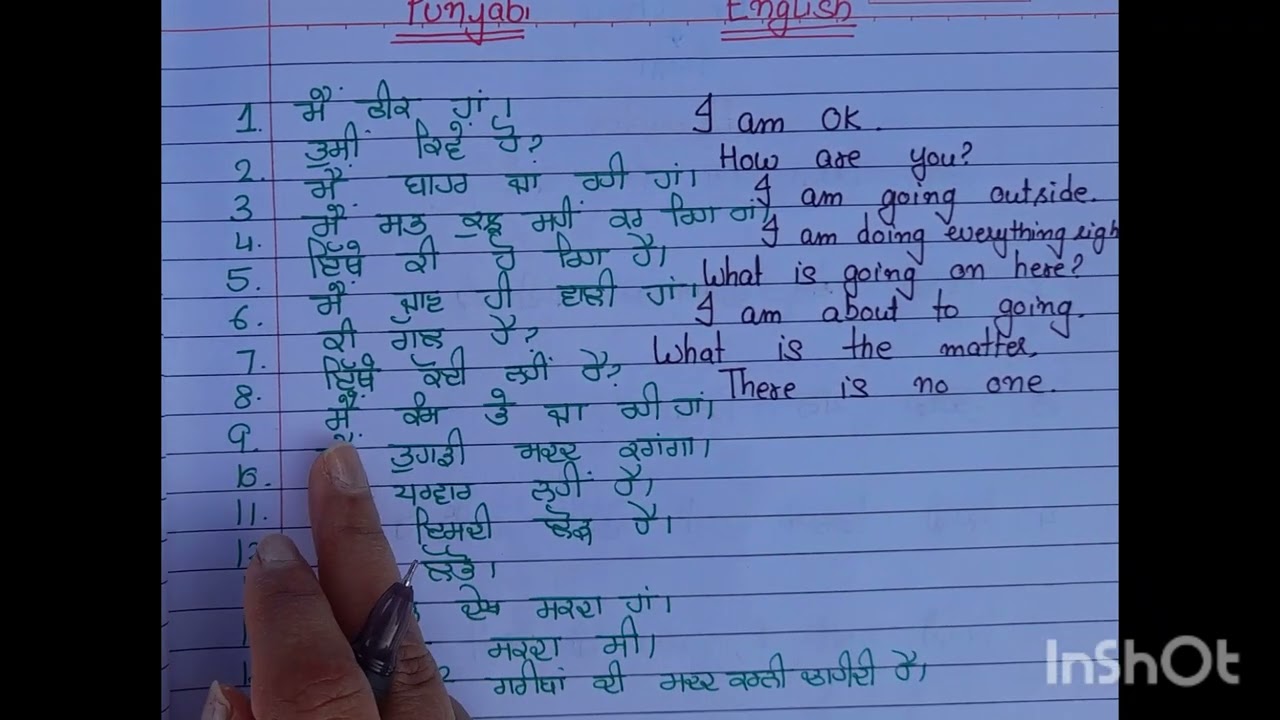 Punjabi English
1. ਮੈਂ ਠੀਕ ਹਾਂ। I am OK.
2. ਤੁਸੀਂ ਕਿਵੇਂ ਹੋ? How are you?
3 ਮੈਂ ਬਾਹਰ ਜਾਂ ਰਹੀ ਹਾਂ। I am going outside.
4. ਮੈਂ ਸਭ ਕੁਝ ਸਹੀਂ ਕਰ ਰਿਹਾ ਹਾਂ। I am doing everything righ
5. ਇੱਥੇ ਕੀ ਹੋ ਰਿਹਾ ਹੈ। What is going on here?
6. ਮੈਂ ਜਾਣ ਹੀ ਵਾਲੀ ਹਾਂ। I am about to going.
7. ਕੀ ਗੱਲ ਹੈ? What is the matter.
8. ਇੱਥੇ ਕੋਈ ਨਹੀਂ ਹੈ? There is no one.
9. ਮੈਂ ਕੰਮ ਤੇ ਜਾ ਰਹੀ ਹਾਂ।
10. ਤੁਹਾਡੀ ਮਦਦ ਕਰਾਂਗਾ।
11. ਨਹੀਂ ਹੈ।
ਇਸਦੀ ਲੋੜ ਹੈ।
ਦੇਖ ਸਕਦਾ ਹਾਂ।
ਸਕਦਾ ਸੀ।
ਗਰੀਬਾਂ ਦੀ ਮਦਦ ਕਰਨੀ ਚਾਹੀਦੀ ਹੈ।
InShOt